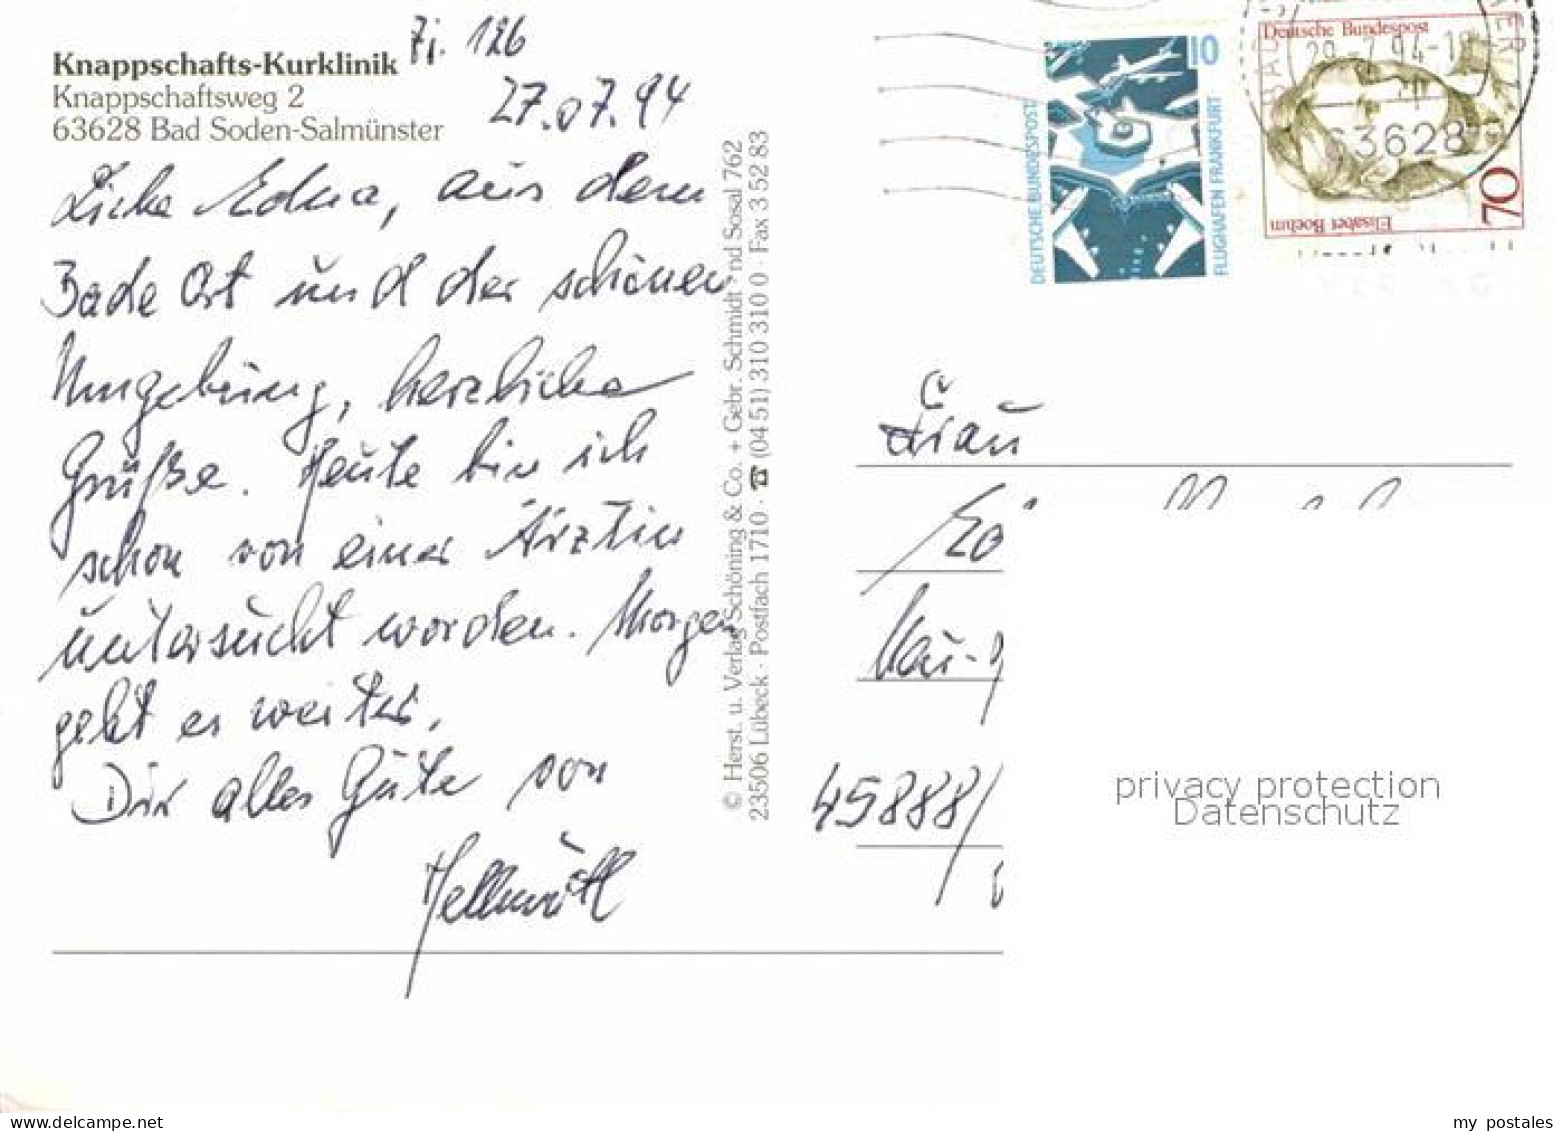 Knappschafts-Kurklinik
Knappschaftsweg 2
63628 Bad Soden-Salmünster
Zi. 126
27.07.94
Liebe Edna, aus dem
Bade Ort und der schönen
Umgebung, herzliche
Grüße. Heute bin ich
schon von einer Ärztin
untersucht worden. Morgen
geht es weiter.
Dir alles Gute von
Hellmuth
© Herst. u. Verlag Schöning & Co. + Gebr. Schmidt nd Sosal 762
23506 Lübeck · Postfach 1710 · ☎ (04 51) 310 310 0 · Fax 3 52 83
DEUTSCHE BUNDESPOST
10
FLUGHAFEN FRANKFURT
Deutsche Bundespost
70
Elisabet Boehm
63628
Frau
45888/
privacy protection
Datenschutz
my postales